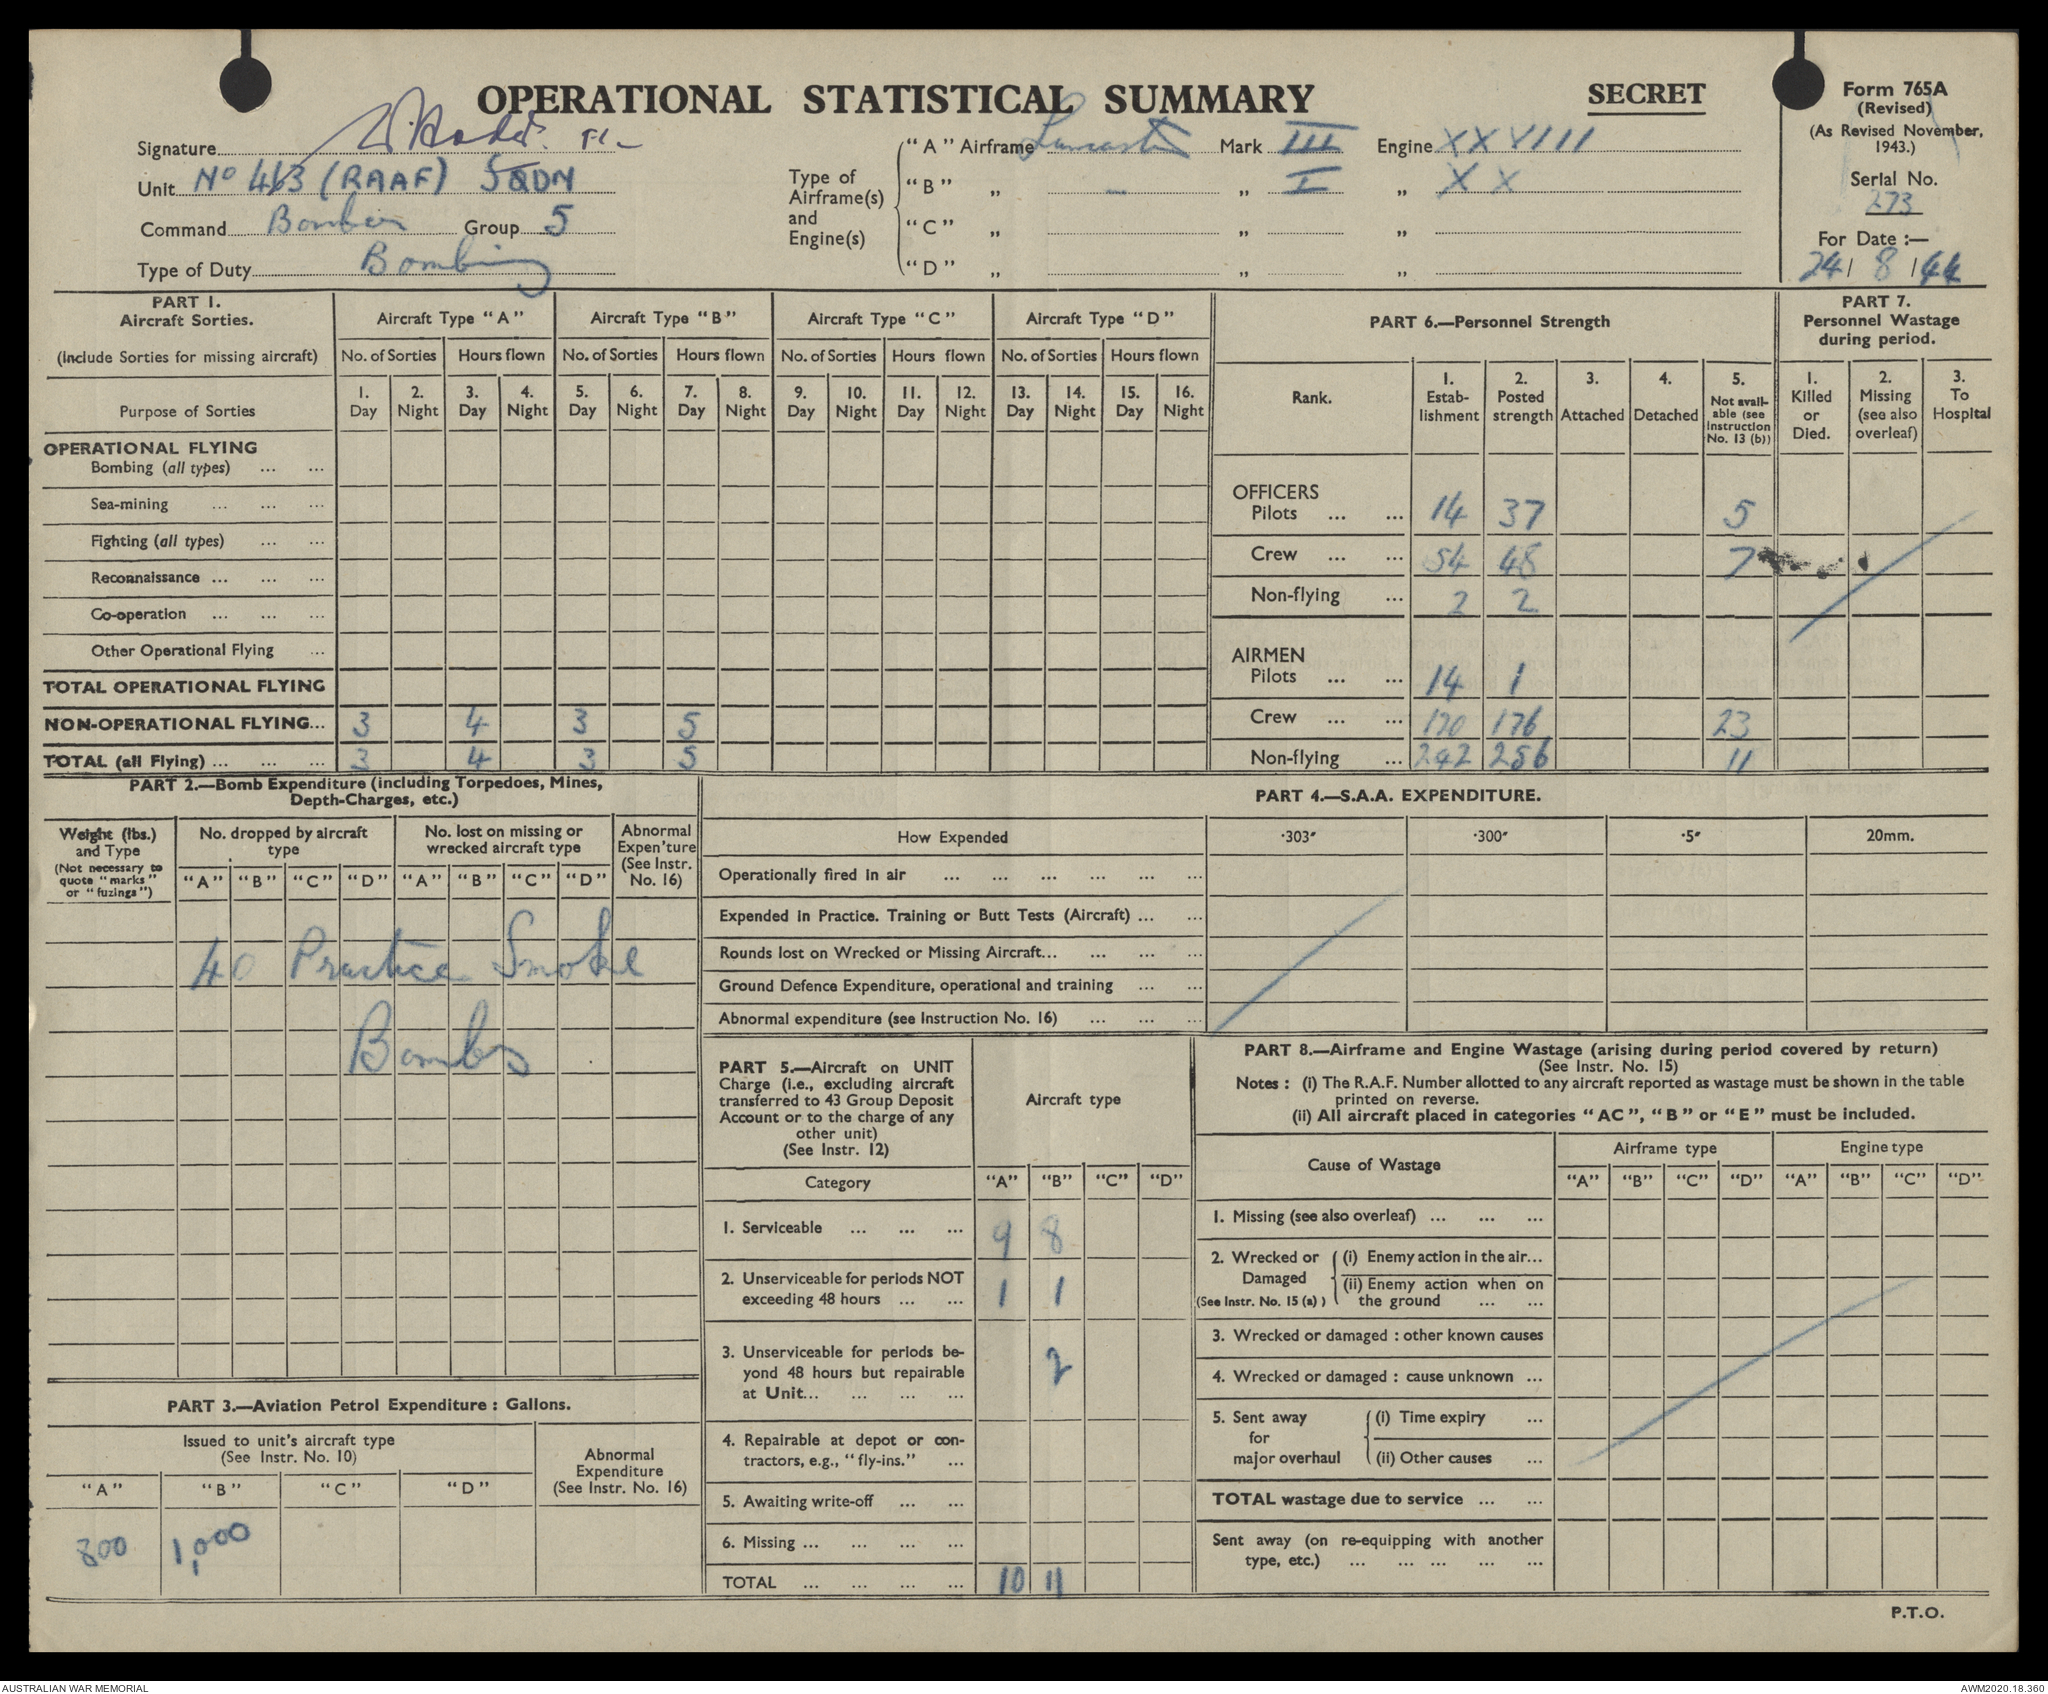 OPERATIONAL STATISTICAL SUMMARY
SECRET
Form 765A
(Revised)
(As Revised November,
1943.)
Serial No.
273
For Date :—
24 / 8 / 44
Signature
Unit No 463 (RAAF) SQDN
Command Bomber Group 5
Type of Duty Bombing
Type of
Airframe(s)
and
Engine(s)
"A" Airframe Lancaster Mark III Engine XXVIII
"B" „ - „ I „ XX
"C" „ „ „
"D" „ „ „
PART 1.
Aircraft Sorties.
(Include Sorties for missing aircraft)
Aircraft Type "A" Aircraft Type "B" Aircraft Type "C" Aircraft Type "D"
No. of Sorties Hours flown No. of Sorties Hours flown No. of Sorties Hours flown No. of Sorties Hours flown
Purpose of Sorties
1. Day 2. Night 3. Day 4. Night 5. Day 6. Night 7. Day 8. Night 9. Day 10. Night 11. Day 12. Night 13. Day 14. Night 15. Day 16. Night
OPERATIONAL FLYING
Bombing (all types) ... ...
Sea-mining ... ... ...
Fighting (all types) ... ...
Reconnaissance ... ... ...
Co-operation ... ... ...
Other Operational Flying ...
TOTAL OPERATIONAL FLYING
NON-OPERATIONAL FLYING... 3 4 3 5
TOTAL (all Flying) ... ... ... 3 4 3 5
PART 6.—Personnel Strength
Rank.
1. Estab-lishment
2. Posted strength
3. Attached
4. Detached
5. Not avail-able (see Instruction No. 13 (b))
OFFICERS
Pilots ... ... 14 37 5
Crew ... ... 54 48 7
Non-flying ... 2 2
AIRMEN
Pilots ... ... 14 1
Crew ... ... 170 176 23
Non-flying ... 242 256 11
PART 7.
Personnel Wastage
during period.
1. Killed or Died.
2. Missing (see also overleaf)
3. To Hospital
PART 2.—Bomb Expenditure (including Torpedoes, Mines,
Depth-Charges, etc.)
Weight (lbs.)
and Type
(Not necessary to
quote "marks"
or "fuzings")
No. dropped by aircraft
type
No. lost on missing or
wrecked aircraft type
Abnormal
Expen'ture
(See Instr.
No. 16)
"A" "B" "C" "D" "A" "B" "C" "D"
40 Practice Smoke
Bombs
PART 3.—Aviation Petrol Expenditure : Gallons.
Issued to unit's aircraft type
(See Instr. No. 10)
Abnormal
Expenditure
(See Instr. No. 16)
"A" "B" "C" "D"
800 1,000
PART 4.—S.A.A. EXPENDITURE.
How Expended ·303" ·300" ·5" 20mm.
Operationally fired in air ... ... ... ... ... ...
Expended in Practice. Training or Butt Tests (Aircraft) ... ...
Rounds lost on Wrecked or Missing Aircraft... ... ... ...
Ground Defence Expenditure, operational and training ... ...
Abnormal expenditure (see Instruction No. 16) ... ... ...
PART 5.—Aircraft on UNIT
Charge (i.e., excluding aircraft
transferred to 43 Group Deposit
Account or to the charge of any
other unit)
(See Instr. 12)
Aircraft type
Category "A" "B" "C" "D"
1. Serviceable ... ... ... 9 8
2. Unserviceable for periods NOT
exceeding 48 hours ... ... 1 1
3. Unserviceable for periods be-
yond 48 hours but repairable
at Unit... ... ... ... 2
4. Repairable at depot or con-
tractors, e.g., "fly-ins." ...
5. Awaiting write-off ... ...
6. Missing ... ... ... ...
TOTAL ... ... ... ... 10 11
PART 8.—Airframe and Engine Wastage (arising during period covered by return)
(See Instr. No. 15)
Notes : (i) The R.A.F. Number allotted to any aircraft reported as wastage must be shown in the table
printed on reverse.
(ii) All aircraft placed in categories "AC", "B" or "E" must be included.
Cause of Wastage
Airframe type Engine type
"A" "B" "C" "D" "A" "B" "C" "D"
1. Missing (see also overleaf) ... ... ...
2. Wrecked or Damaged (See Instr. No. 15 (a))
(i) Enemy action in the air...
(ii) Enemy action when on
the ground ... ...
3. Wrecked or damaged : other known causes
4. Wrecked or damaged : cause unknown ...
5. Sent away for major overhaul
(i) Time expiry ...
(ii) Other causes ...
TOTAL wastage due to service ... ...
Sent away (on re-equipping with another
type, etc.) ... ... ... ... ...
P.T.O.
AUSTRALIAN WAR MEMORIAL
AWM2020.18.360